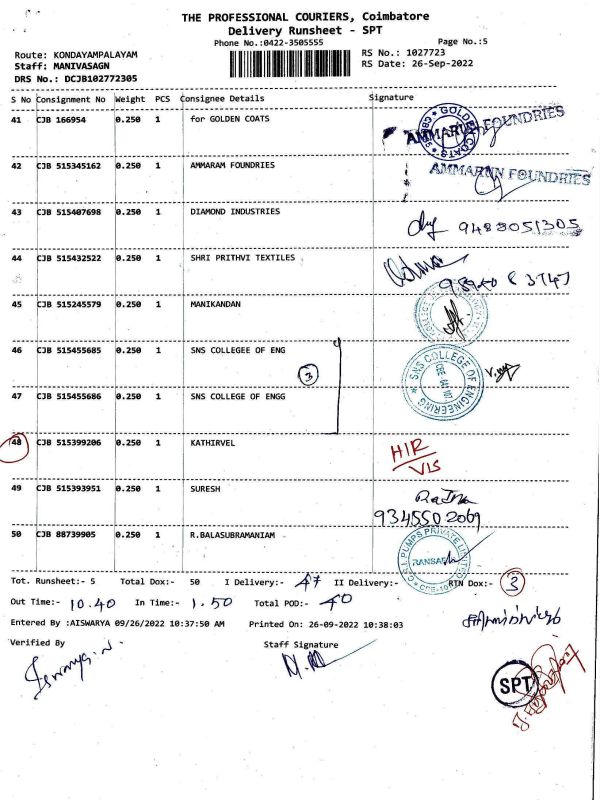 THE PROFESSIONAL COURIERS, Coimbatore
Delivery Runsheet - SPT
Phone No.:0422-3505555
Page No.:5
Route: KONDAYAMPALAYAM
RS No.: 1027723
Staff: MANIVASAGN
RS Date: 26-Sep-2022
DRS No.: DCJB102772305
S No Consignment No Weight PCS Consignee Details Signature
41 CJB 166954 0.250 1 for GOLDEN COATS
GOLDEN COATS
AMMARUN FOUNDRIES
42 CJB 515345162 0.250 1 AMMARAM FOUNDRIES
AMMARUN FOUNDRIES
43 CJB 515407698 0.250 1 DIAMOND INDUSTRIES
9488051305
44 CJB 515432522 0.250 1 SHRI PRITHVI TEXTILES
45 CJB 515245579 1 MANIKANDAN
0.250
46 CJB 515455685 0.250 1 SNS COLLEGEE OF ENG
3
SNS COLLEGE OF ENGINEERING
47 CJB 515455686 0.250 1 SNS COLLEGE OF ENGG
48 CJB 515399206 0.250 1 KATHIRVEL
HIR
VIS
49 CJB 515393951 0.250 1 SURESH
9345502069
50 CJB 88739905 0.250 1 R.BALASUBRAMANIAM
PUMPS PRIVATE LIMITED
Tot. Runsheet:- 5 Total Dox:- 50 I Delivery:- 47 II Delivery:- RTN Dox:- 3
Out Time:- 10.40 In Time:- 1.50 Total POD:- 40
Entered By :AISWARYA 09/26/2022 10:37:50 AM Printed On: 26-09-2022 10:38:03
Verified By
Staff Signature
SPT